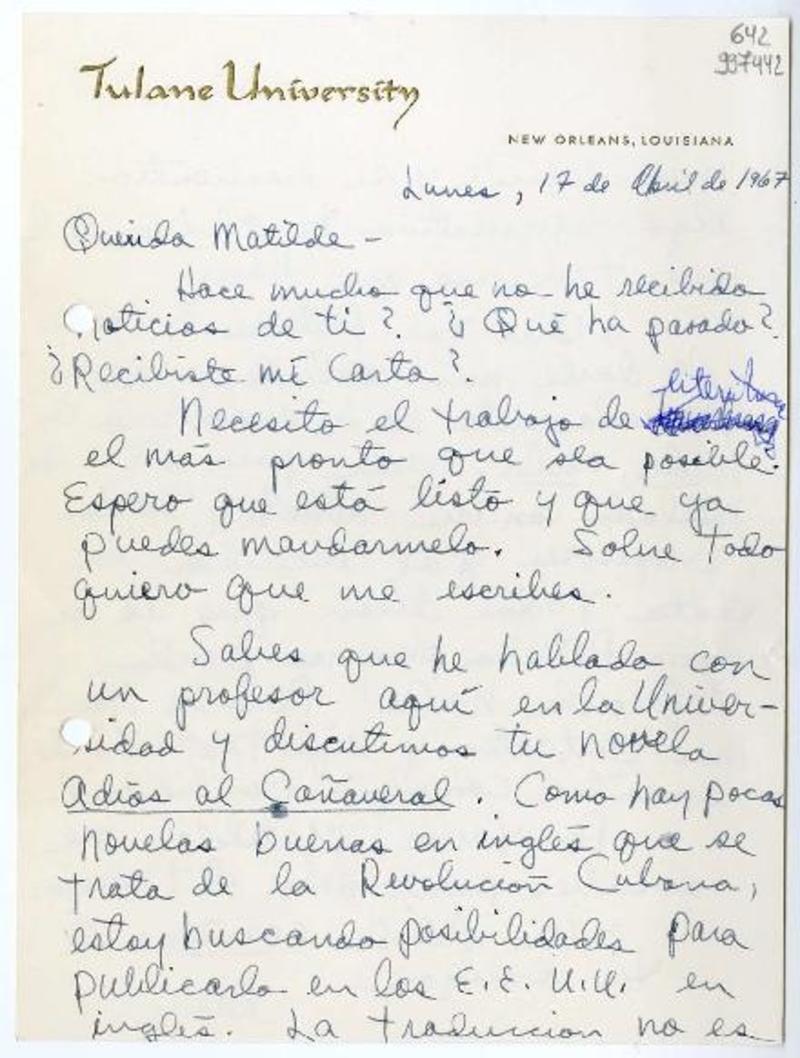 642
997442
Tulane University
NEW ORLEANS, LOUISIANA
Lunes, 17 de Abril de 1967
Querida Matilde -
Hace mucho que no he recibido
noticias de ti? ¿ Qué ha pasado?
¿Recibiste mi Carta?
Necesito el trabajo de
el más pronto que sea posible.
Espero que está listo y que ya
puedes mandarmelo. Sobre todo
quiero que me escribes.
Sabes que he hablado con
un profesor aquí en la Univer-
sidad y discutimos tu novela
Adiós al Cañaveral. Como hay pocas
novelas buenas en inglés que se
trata de la Revolución Cubana,
estoy buscando posibilidades para
publicarla en los E.E. U.U. en
inglés. La traduccion no es